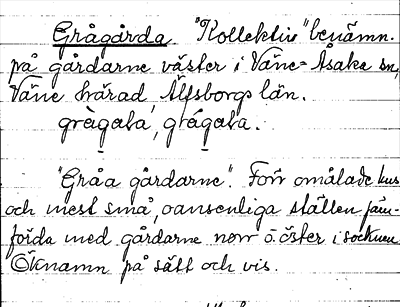 Grågårda "Kollektiv" benämn.
på gårdarne väster i Väne-Åsaka sn,
Väne härad, Älfsborgs län.
grègaLa, grégaLa.
"Gråa gårdarne". Förr omålade hus
och mest små, oansenliga ställen jäm-
förda med gårdarne norr o. öster i socknen
Öknamn på sätt och vis.